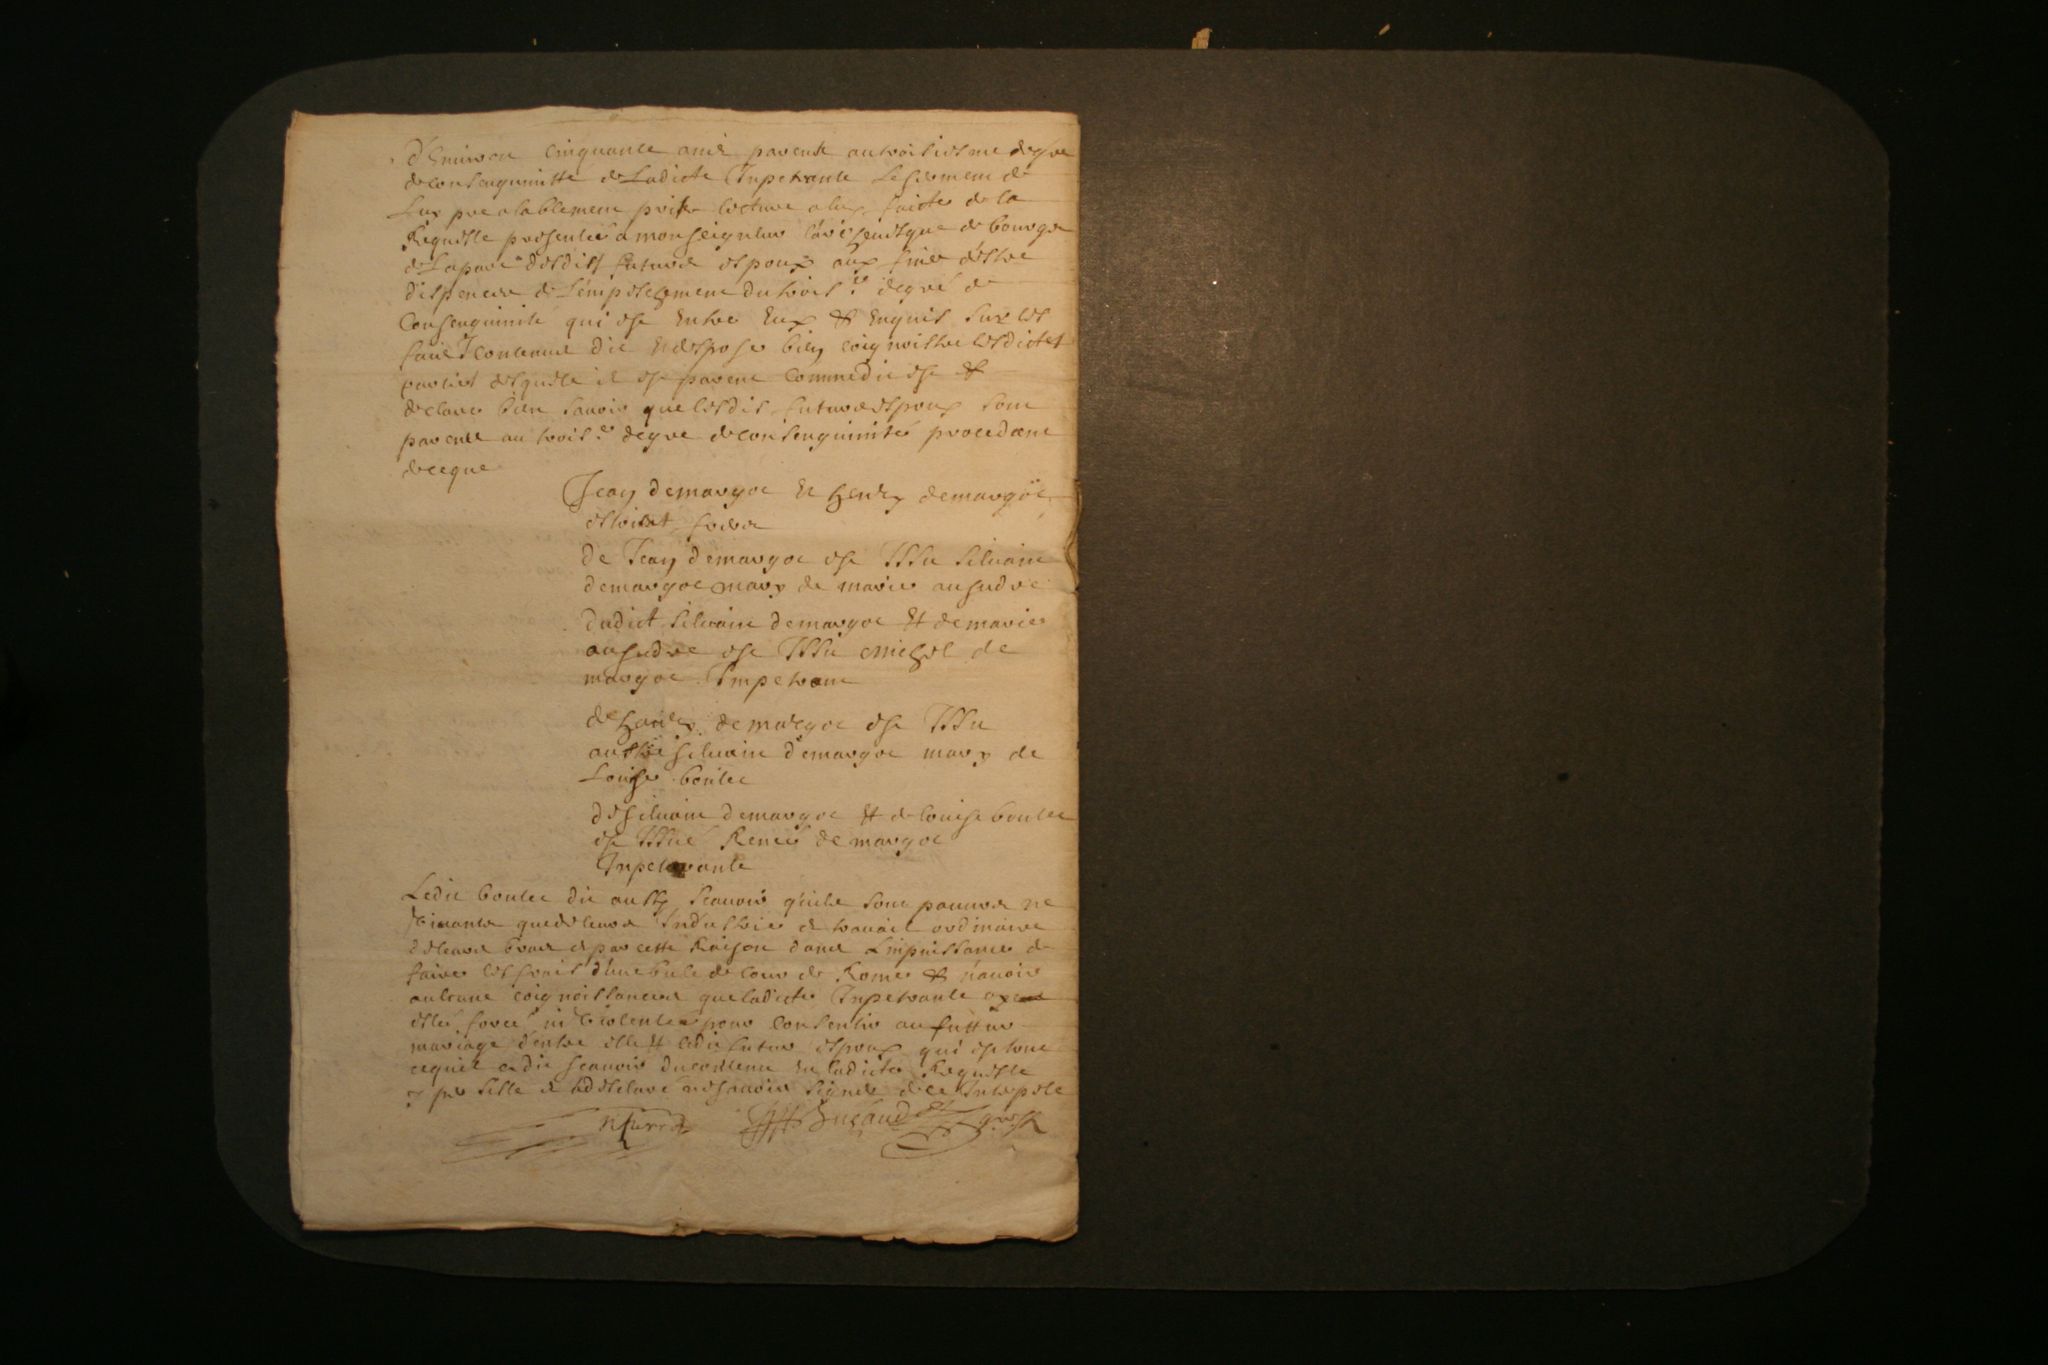 d'Environ cinquante ans parent au troisiesme degre
de consenguinitté de Ladicte Inpetrante Le serment de
Luy prealablement pris lecture a luy faicte de la
Requeste presentée a monseigneur l'archevesque de bourge
de La part desdits futurs espoux aux fins destre
dispencer de L'empeschement du trois.e degré de
Consenguinité qui est Entre Eux & Enquis sur les
faict Contenus dit Et despose bien coignoistre lesdictes
parties desquels il est parent comme dit est &
declare bien savoir que lesdit futurs espoux sont
parents au trois.e degre de consenguinité procedent
de ce que
Jean demargoe Et henry demargoe
estoient freres
de Jean demargoe est Issu silvain
demargoe mary de marie ausudre
dudict silvain demargoe Et de marie
ausudre est Issu michel de
margoe Impetrant
de henry demargoe est Issu
autre silvain demargoe mary de
Louise boulet
de silvain demargoe Et de louise boulet
est Issue Renée de margoe
Inpetrante
Ledit boulet dit aussy scavoir qu'ils sont pauvres ne
vivants que de leurs Industrie & travail ordinaire
de leurs bras & par cette Raison dans L'inpuissance de
faire les frais d'une bule de cour de Rome & n'avoir
aulcune coignoissances que ladicte Inpetrante aye
esté forcé ni violentée pour consentir au futtur
mariage d'entre elle & ledit futur espoux qui est tout
ce quil a dit scavoir du contenu En ladicte Requeste
& a declaré ne scavoir signer de ce Interpele